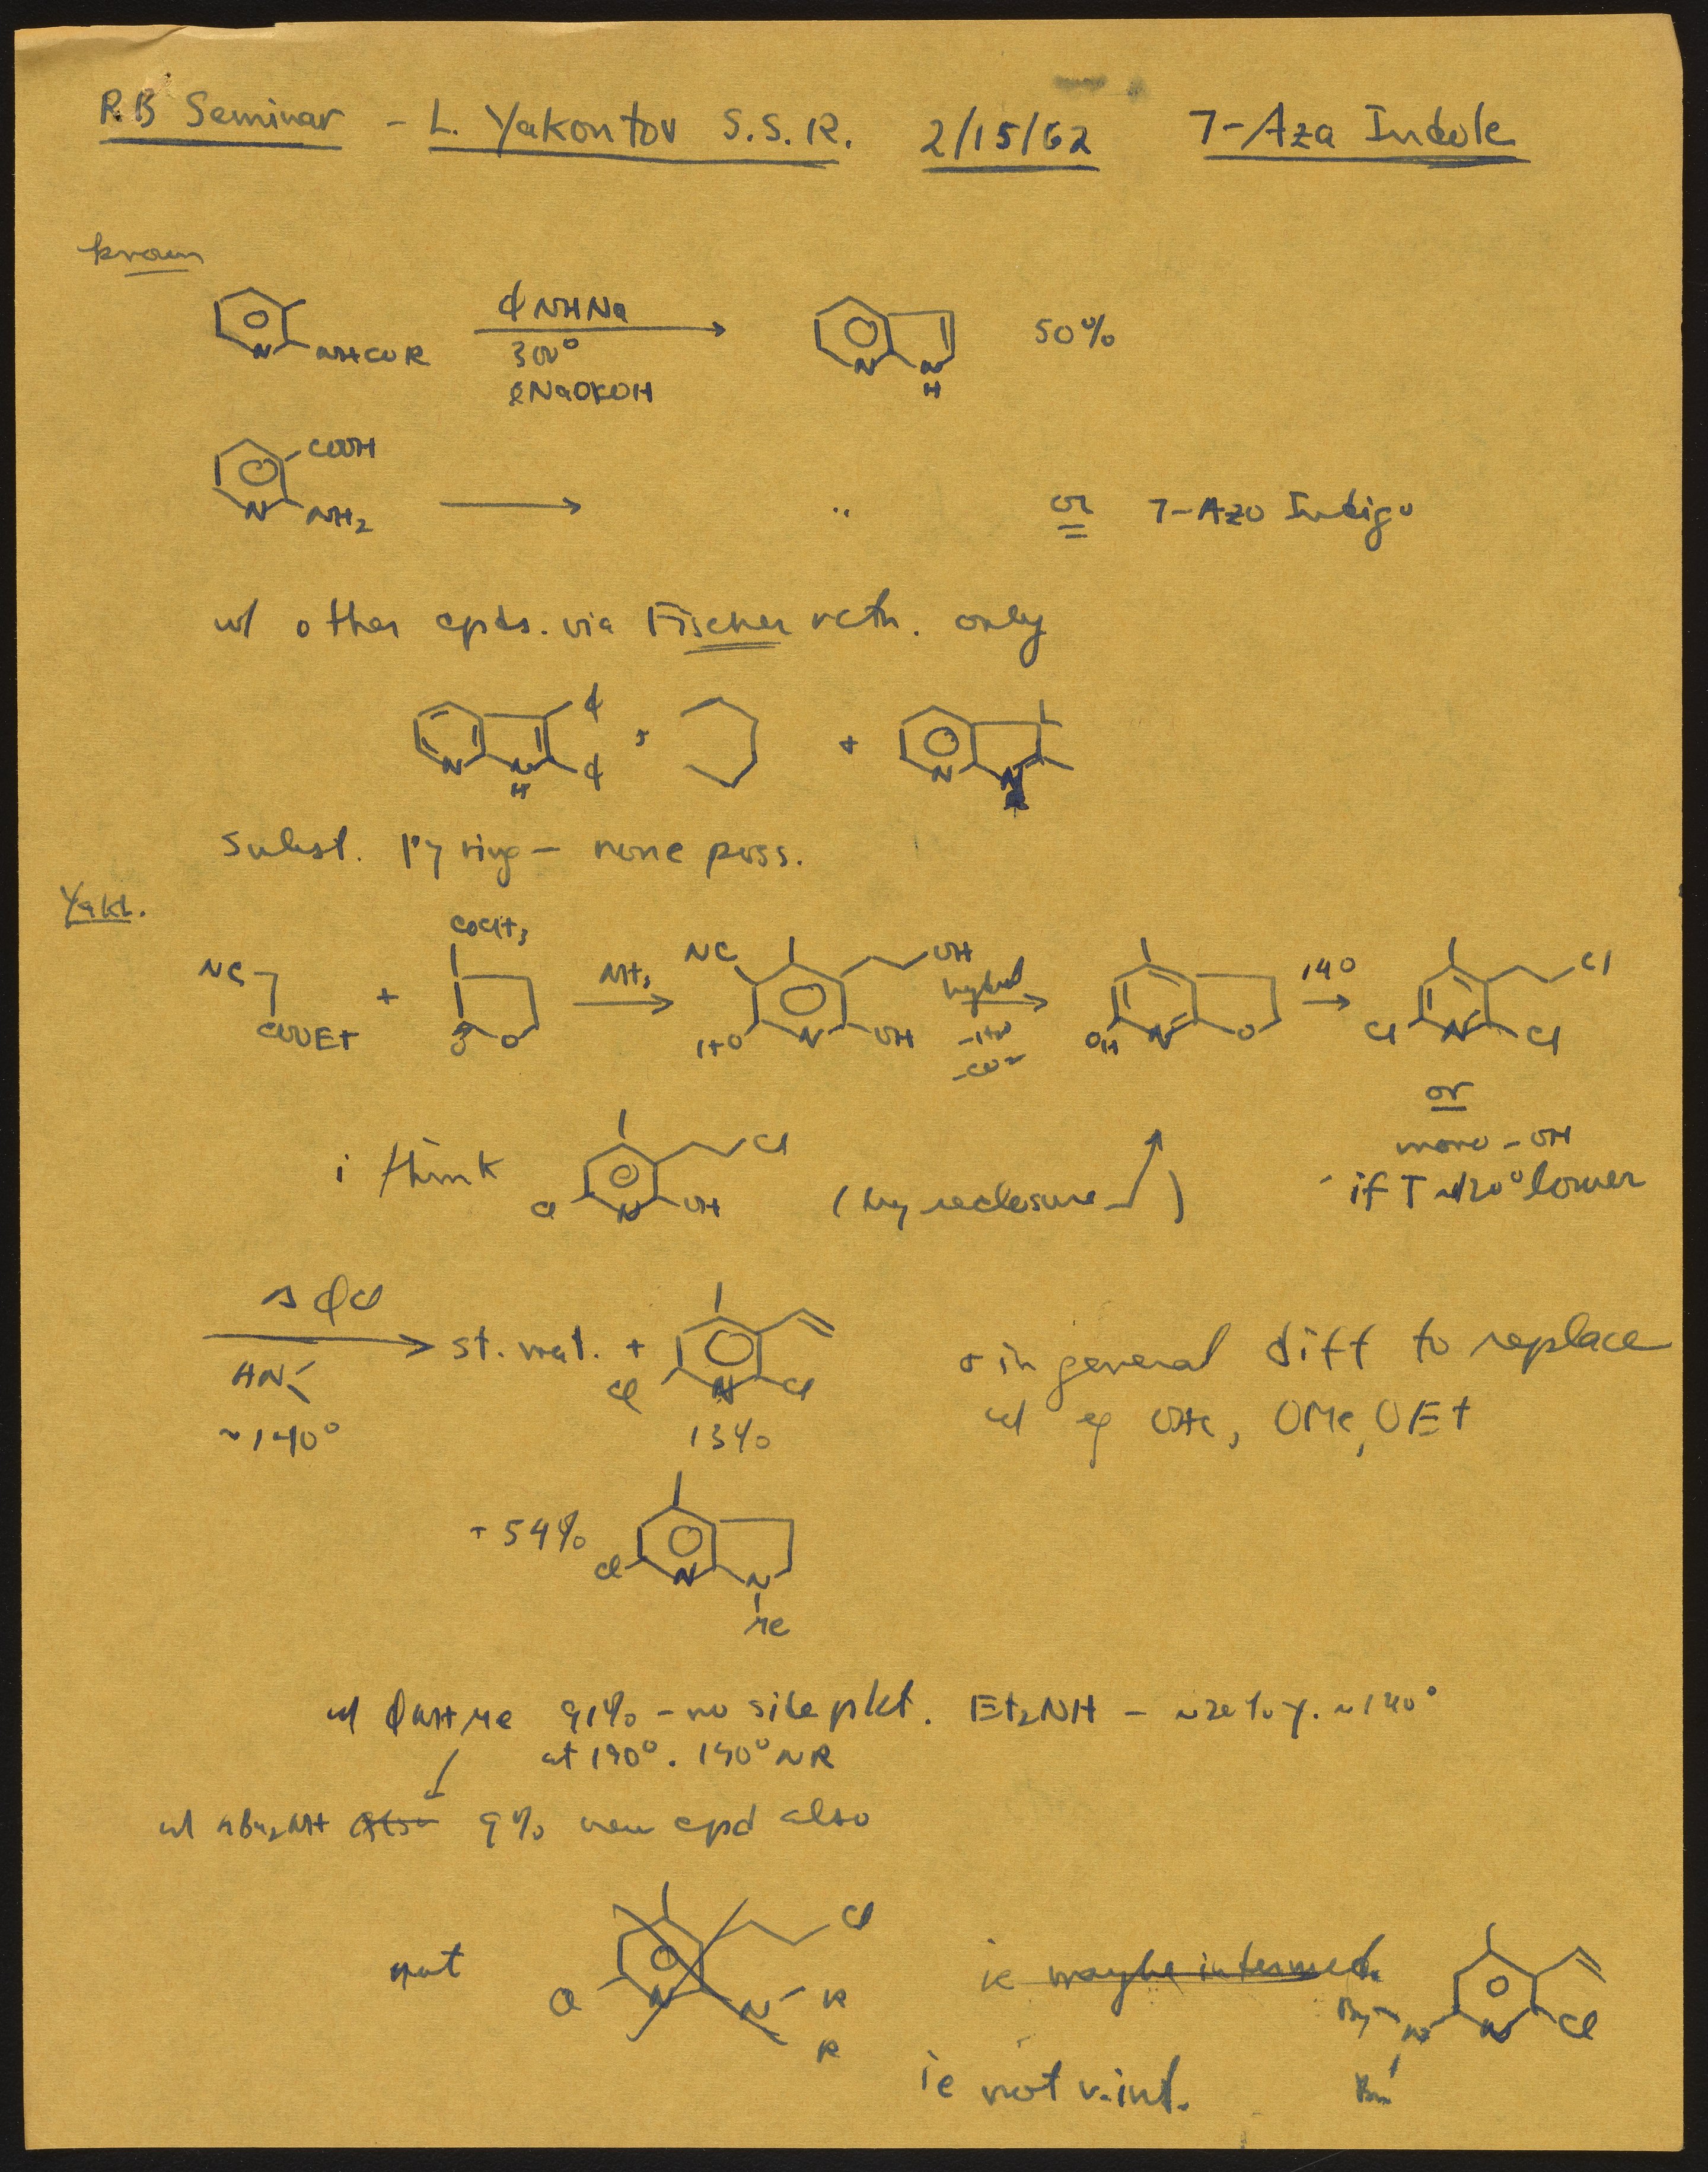 RB Seminar - L. Yakontov S.S.R. 2/15/62 7-Aza Indole
known
N NHCOR ϕNHNa 300° NaOKOH N N H 50%
COOH N NH2 " or 7-Azo Indigo
w/ other cpds. via Fischer rctn. only
N N H ϕ ϕ , + N N
Subst. py ring - none poss.
Yakt.
NC COOEt + COCH3 O O NH3 NC OH HO N OH hydrol -H2O -CO2 OH N O 140 Cl Cl N Cl
or
mono-OH
if T ~120° lower
i think Cl Cl N OH (by reclosure )
ϕCl HN ~140° st. mat. + Cl N Cl 13%
+ in general diff to replace
w/ eg OMe, OEt
+ 54% Cl N N Me
w/ ϕNHMe 91% - no side pdt. Et2NH - ~20% y. ~140°
at 190°. 140° NR
w/ nBu2NH also 9% new cpd also
not Cl N N R R Cl ie maybe intermed. Bu N Bu N Cl
ie not v. int.